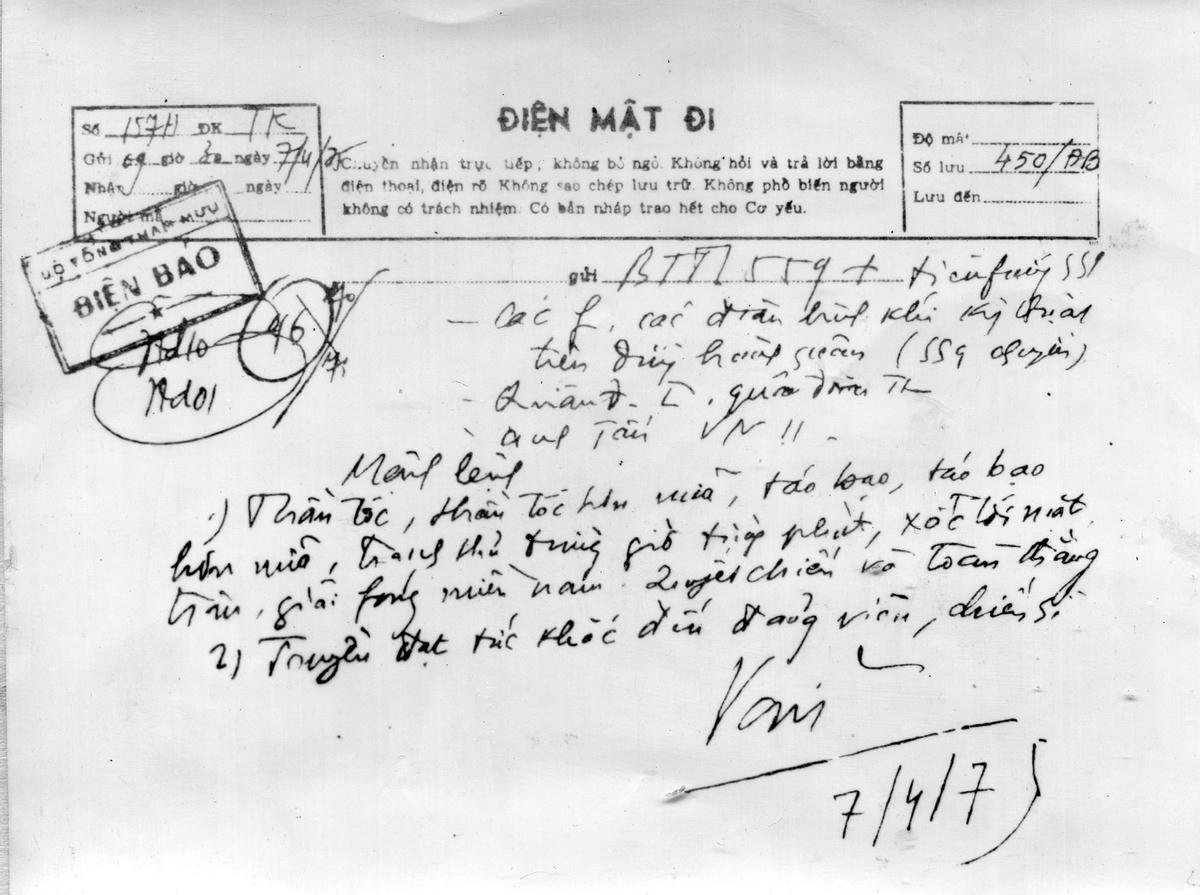 ĐIỆN MẬT ĐI
Số 157H ĐK TK
Gửi 09 giờ ngày 7/4/75
Nhận giờ ngày
Người mã
Chuyền nhận trực tiếp, không bỏ ngỏ. Không hỏi và trả lời bằng
điện thoại, điện rõ. Không sao chép lưu trữ. Không phổ biến người
không có trách nhiệm. Có bản nháp trao hết cho Cơ yếu.
Độ mật
Số lưu 450/ĐB
Lưu đến
BỘ TỔNG THAM MƯU
ĐIỆN BÁO
46
gửi BTTL 559 +
- Các f, các binh khí kỹ thuật
(559 chuyển)
- quân đoàn
- anh Tấn
Mệnh lệnh
1) Thần tốc, thần tốc hơn nữa, táo bạo, táo bạo
hơn nữa, tranh thủ từng giờ từng phút, xốc tới mặt
trận, giải fóng miền nam. Quyết chiến và toàn thắng
2) Truyền đạt tức khắc đến đảng viên, chiến sĩ
Văn
7/4/75